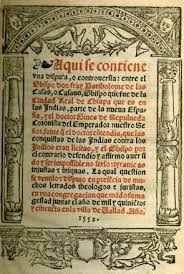 Aqui se contiene
vna disputa, o controuersia: entre el
Obispo don fray Bartholome de las
Casas, o Casaus, Obispo que fue de la
Ciudad Real de Chiapa que es en
las Indias, parte de la nueua Espa-
ña, y el doctor Gines de Sepulueda
Coronista del Emperador nuestro Se-
ñor: sobre que el doctor contendia: que las
conquistas de las Indias contra los
Indios eran licitas: y el obispo por
el contrario defendio y affirmo auer si-
do y ser impossible no serlo: tiranicas,
injustas y iniquas. La qual question
se ventilo y disputo en presencia de mu-
chos letrados theologos y juristas,
en vna congregacion que mando su ma-
gestad juntar el año de mil y quinientos
y cincuenta en la villa de Vallad.
Año.
1552.